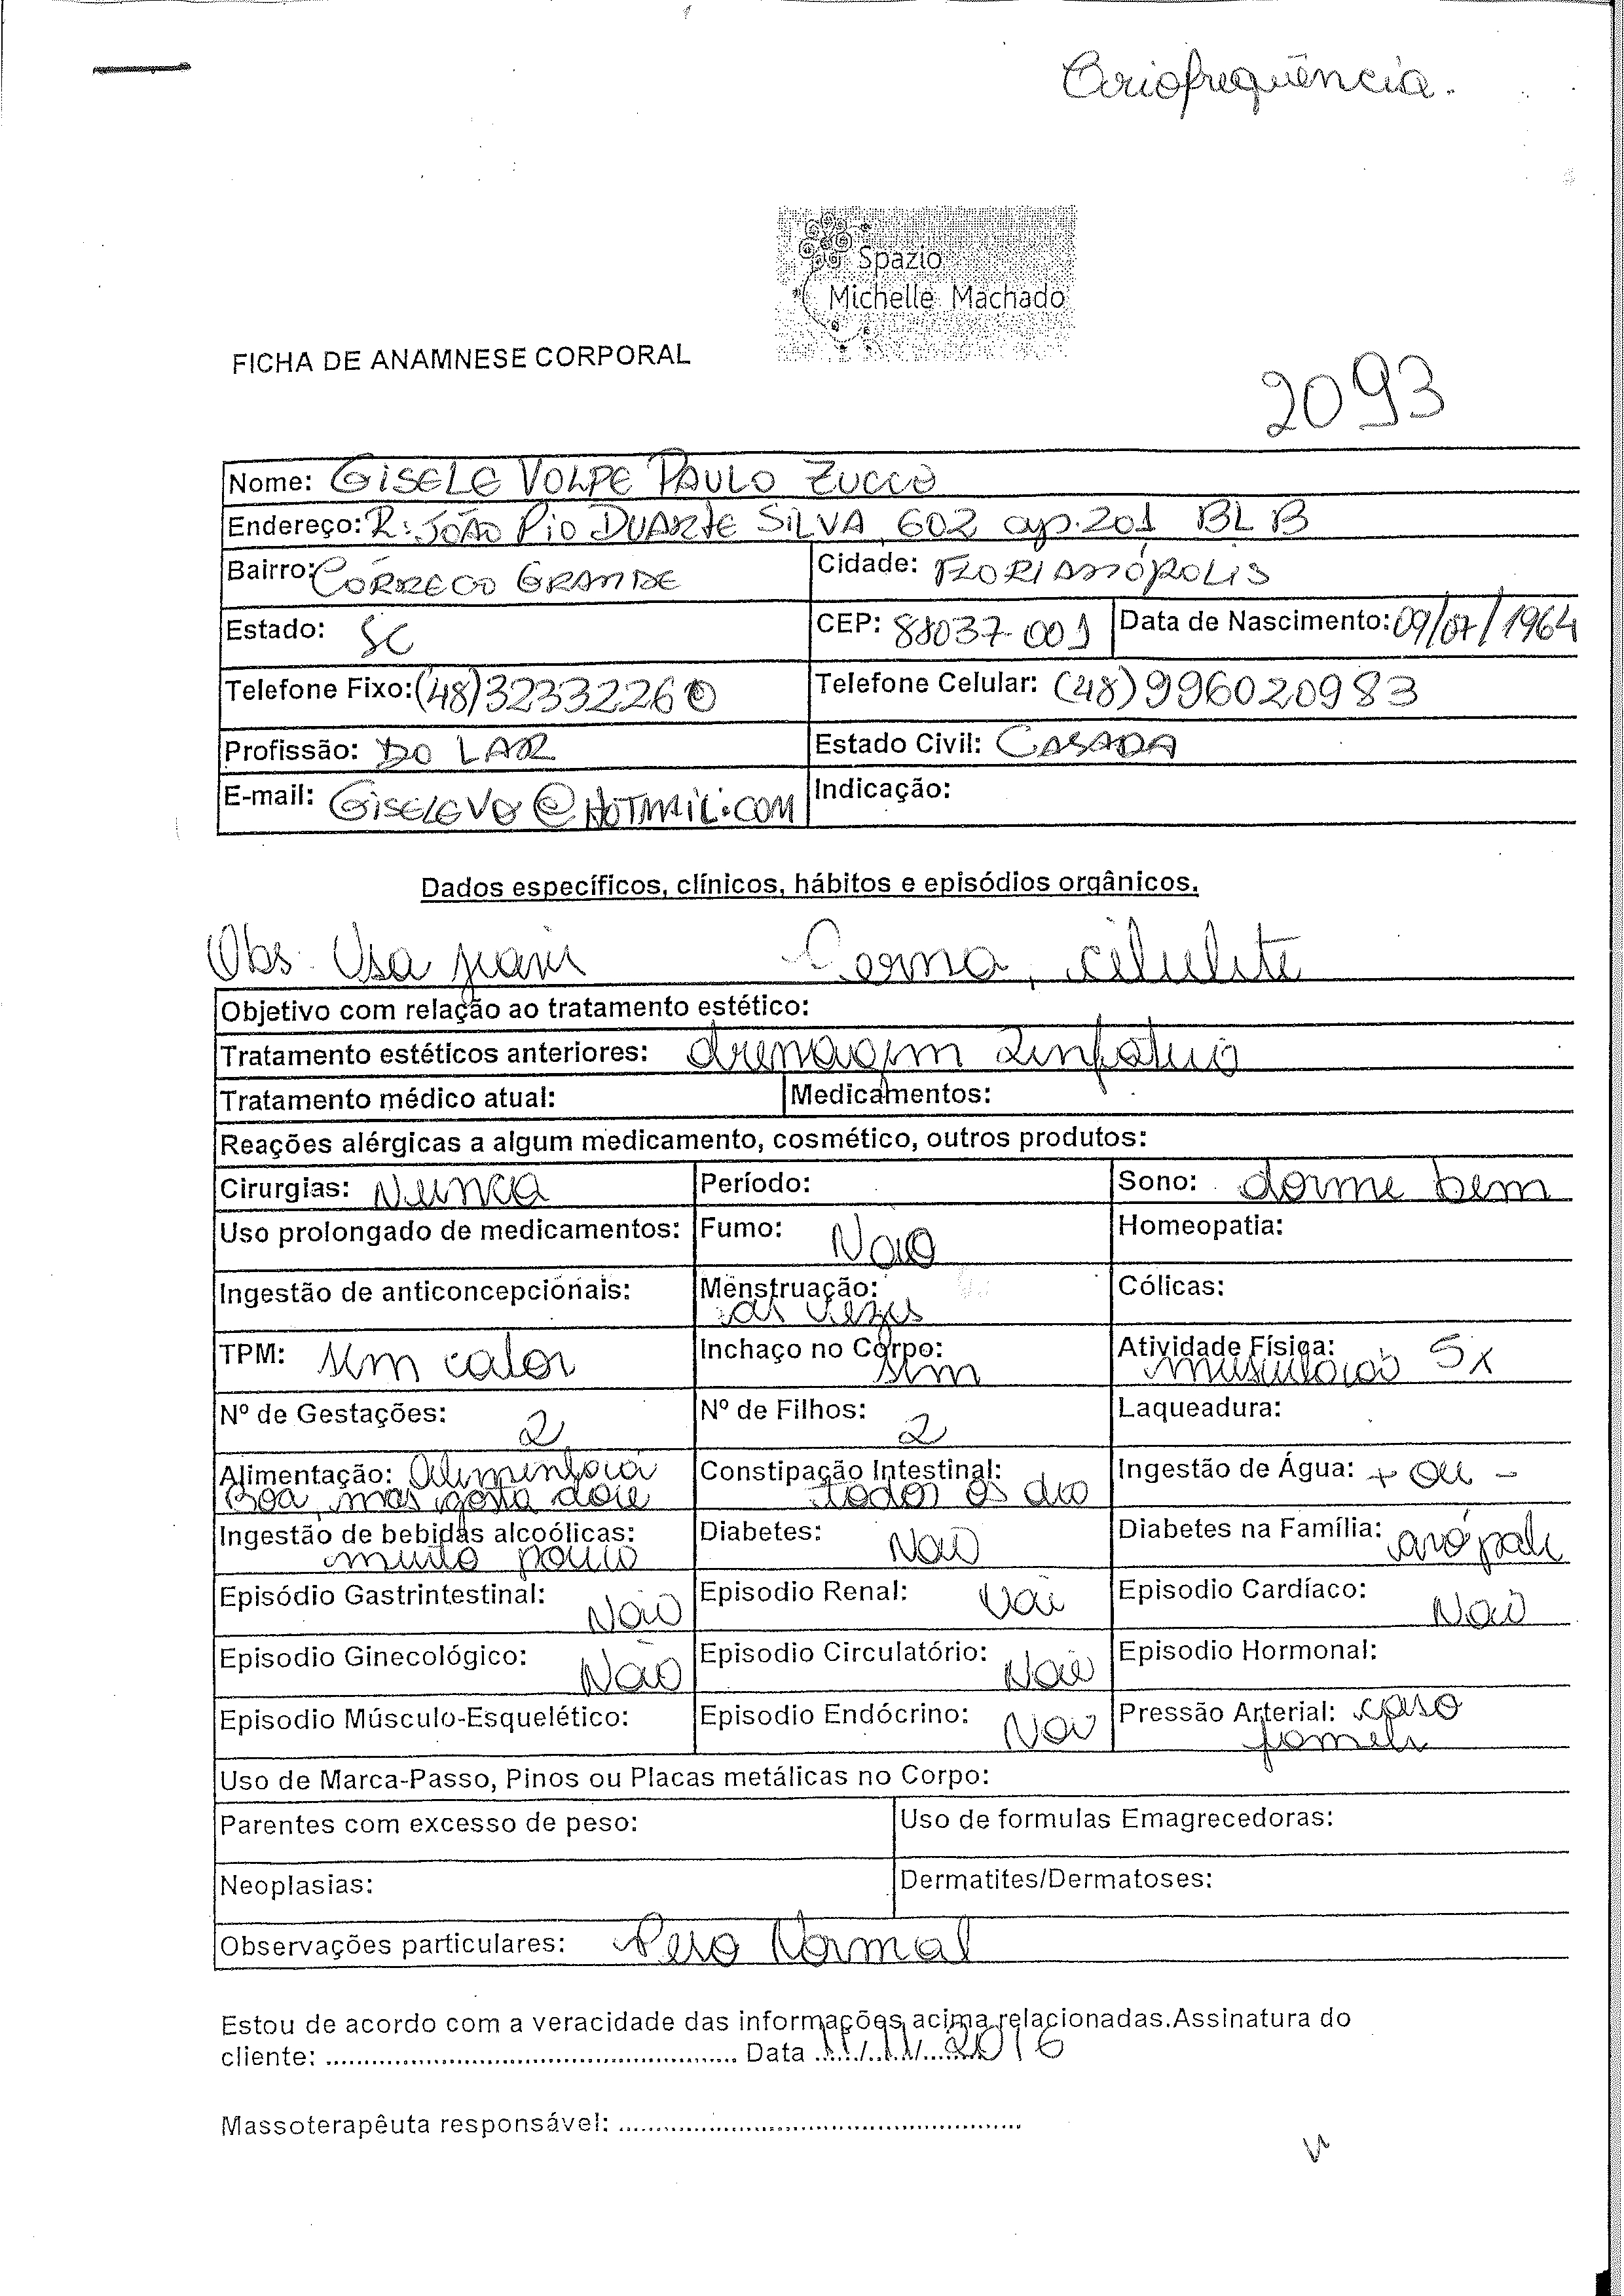 Criofrequência.
Spazio
Michelle Machado
FICHA DE ANAMNESE CORPORAL
2093
Nome: GISELE VOLPE PAULO ZUCCO
Endereço: R: JOÃO PIO DUARTE SILVA, 602 ap. 201 BL B
Bairro: CÓRREGO GRANDE Cidade: FLORIANÓPOLIS
Estado: SC CEP: 88037-001 Data de Nascimento: 09/07/1964
Telefone Fixo: (48) 32332260 Telefone Celular: (48) 996020983
Profissão: DO LAR Estado Civil: CASADA
E-mail: GISELEVO@HOTMAIL.COM Indicação:
Dados específicos, clínicos, hábitos e episódios orgânicos.
Obs. Usa celulite
Objetivo com relação ao tratamento estético:
Tratamento estéticos anteriores: drenagem
Tratamento médico atual: Medicamentos:
Reações alérgicas a algum medicamento, cosmético, outros produtos:
Cirurgias: Nunca Período: Sono: dorme bem
Uso prolongado de medicamentos: Fumo: Não Homeopatia:
Ingestão de anticoncepcionais: Menstruação: as vezes Cólicas:
TPM: sim calor Inchaço no Corpo: sim Atividade Física: musculação 5x
Nº de Gestações: 2 Nº de Filhos: 2 Laqueadura:
Alimentação: Alimentação Constipação Intestinal: todos os dia Ingestão de Água: + ou -
Boa, mas gosta doce
Ingestão de bebidas alcoólicas: muito pouco Diabetes: Não Diabetes na Família:
Episódio Gastrintestinal: Não Episodio Renal: Episodio Cardíaco: Não
Episodio Ginecológico: Não Episodio Circulatório: Não Episodio Hormonal:
Episodio Músculo-Esquelético: Episodio Endócrino: Não Pressão Arterial: caso
Uso de Marca-Passo, Pinos ou Placas metálicas no Corpo:
Parentes com excesso de peso: Uso de formulas Emagrecedoras:
Neoplasias: Dermatites/Dermatoses:
Observações particulares: Peso Normal
Estou de acordo com a veracidade das informações acima relacionadas.Assinatura do
cliente: ........................................................ Data 11/11/2016
Massoterapêuta responsável: ........................................................